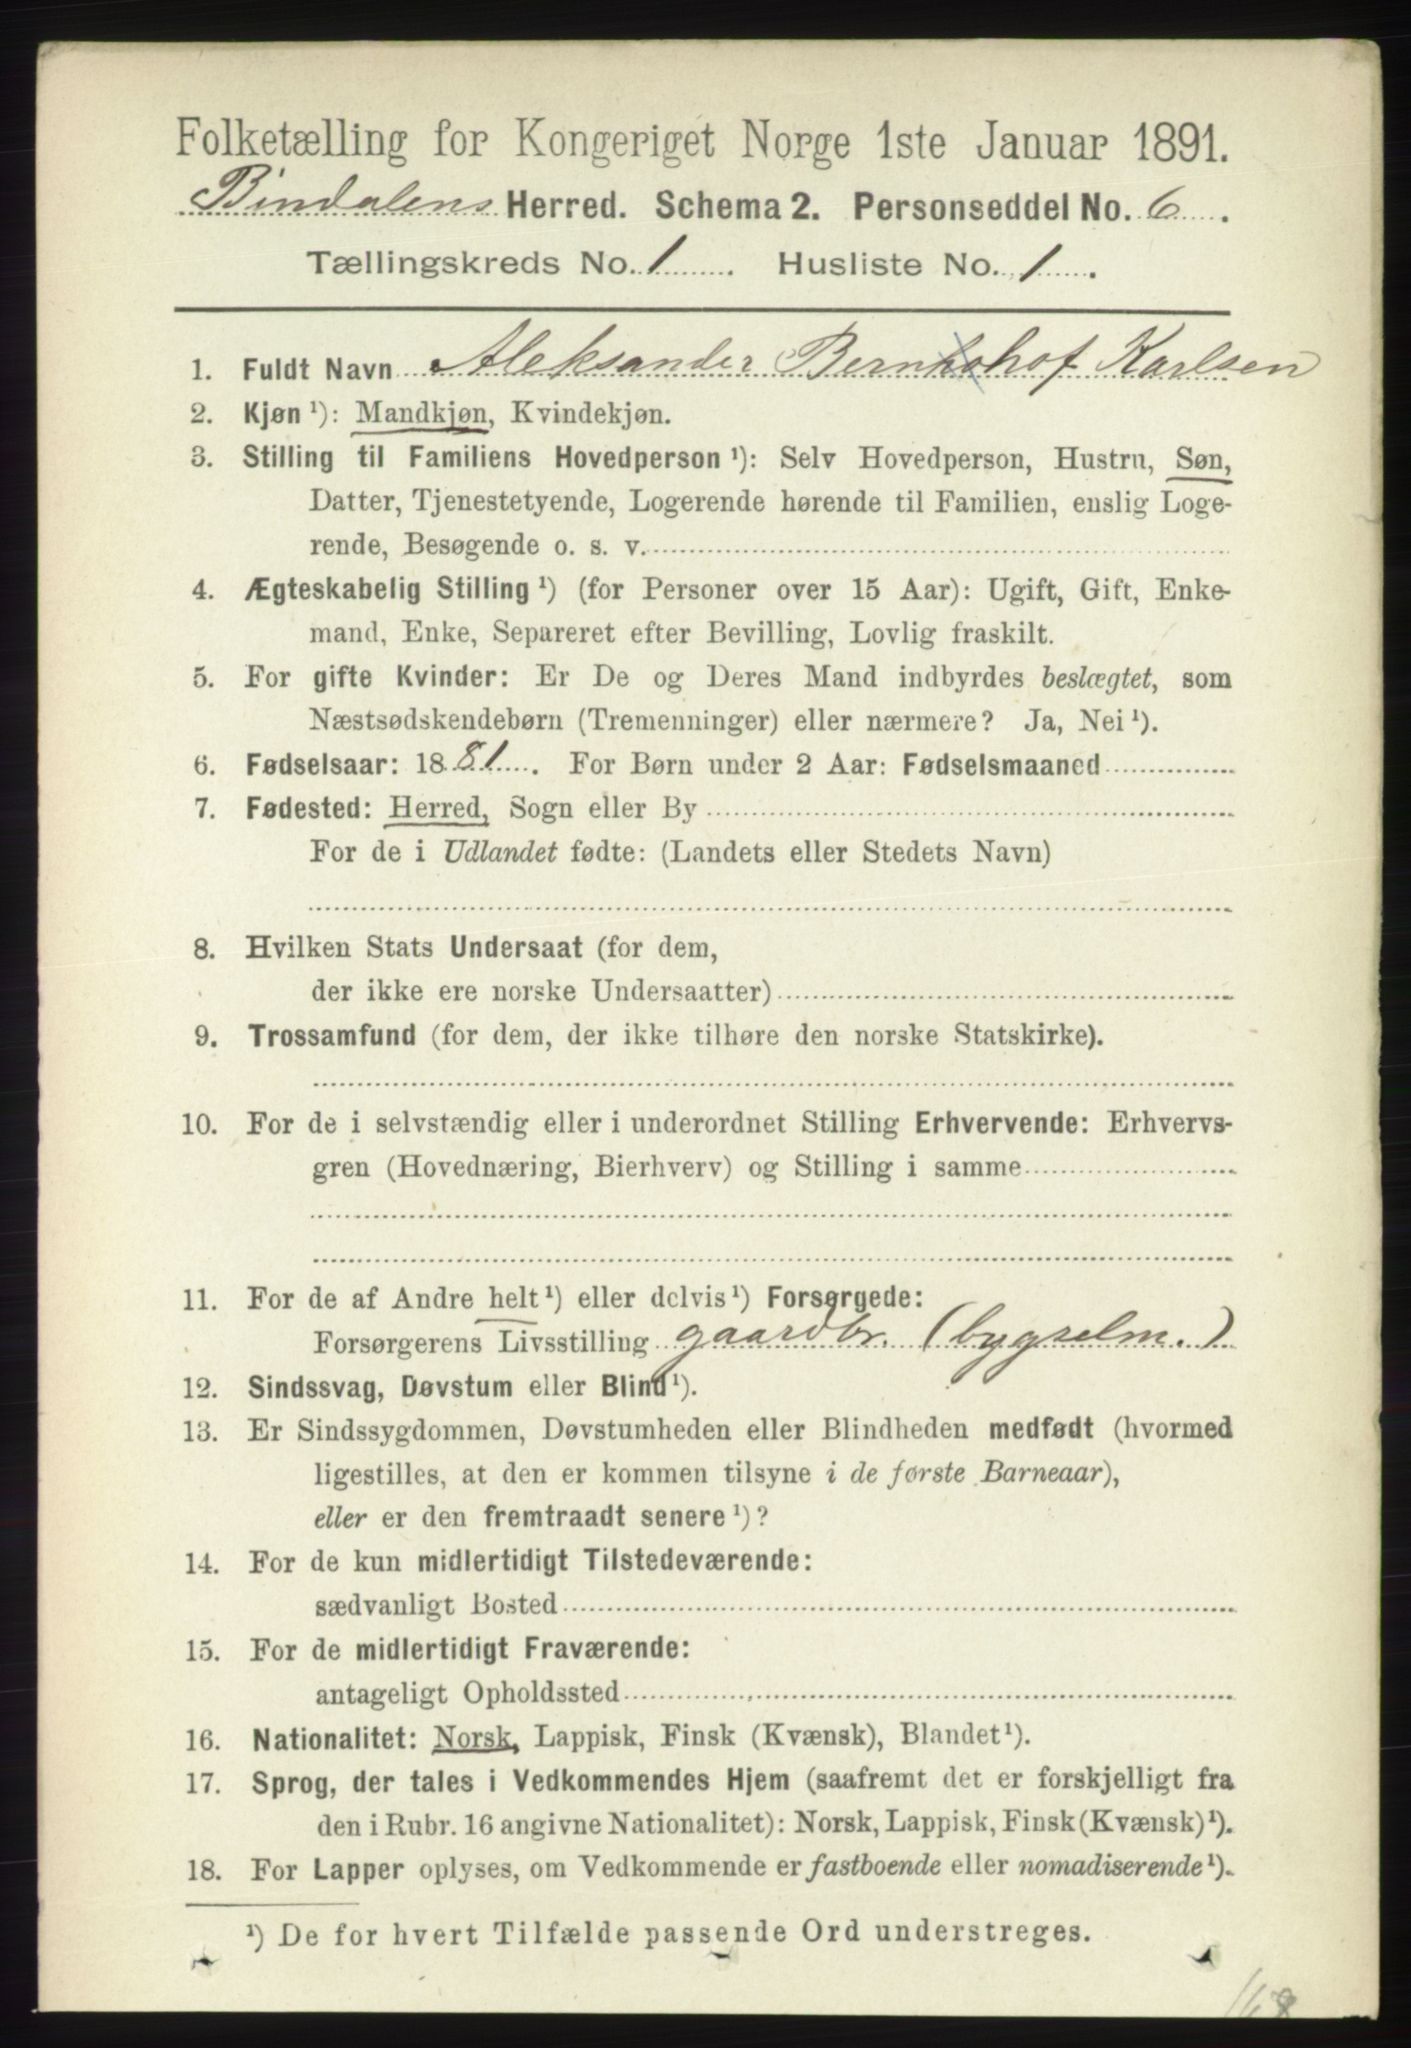 Folketælling for Kongeriget Norge 1ste Januar 1891.
Bindalens Herred. Schema 2. Personseddel No. 6.
Tællingskreds No. 1. Husliste No. 1.
1. Fuldt Navn Aleksander Karlsen
2. Kjøn ¹): Mandkjøn, Kvindekjøn.
3. Stilling til Familiens Hovedperson ¹): Selv Hovedperson, Hustru, Søn,
Datter, Tjenestetyende, Logerende hørende til Familien, enslig Loge-
rende, Besøgende o. s. v.
4. Ægteskabelig Stilling ¹) (for Personer over 15 Aar): Ugift, Gift, Enke-
mand, Enke, Separeret efter Bevilling, Lovlig fraskilt.
5. For gifte Kvinder: Er De og Deres Mand indbyrdes beslægtet, som
Næstsødskendebørn (Tremenninger) eller nærmere? Ja, Nei ¹).
6. Fødselsaar: 1881. For Børn under 2 Aar: Fødselsmaaned
7. Fødested: Herred, Sogn eller By
For de i Udlandet fødte: (Landets eller Stedets Navn)
8. Hvilken Stats Undersaat (for dem,
der ikke ere norske Undersaatter)
9. Trossamfund (for dem, der ikke tilhøre den norske Statskirke).
10. For de i selvstændig eller i underordnet Stilling Erhvervende: Erhvervs-
gren (Hovednæring, Bierhverv) og Stilling i samme
11. For de af Andre helt ¹) eller delvis ¹) Forsørgede:
Forsørgerens Livsstilling gaardbr. (bygselm.)
12. Sindssvag, Døvstum eller Blind ¹).
13. Er Sindssygdommen, Døvstumheden eller Blindheden medfødt (hvormed
ligestilles, at den er kommen tilsyne i de første Barneaar),
eller er den fremtraadt senere ¹)?
14. For de kun midlertidigt Tilstedeværende:
sædvanligt Bosted
15. For de midlertidigt Fraværende:
antageligt Opholdssted
16. Nationalitet: Norsk, Lappisk, Finsk (Kvænsk), Blandet ¹).
17. Sprog, der tales i Vedkommendes Hjem (saafremt det er forskjelligt fra
den i Rubr. 16 angivne Nationalitet): Norsk, Lappisk, Finsk (Kvænsk) ¹).
18. For Lapper oplyses, om Vedkommende er fastboende eller nomadiserende ¹).
¹) De for hvert Tilfælde passende Ord understreges.